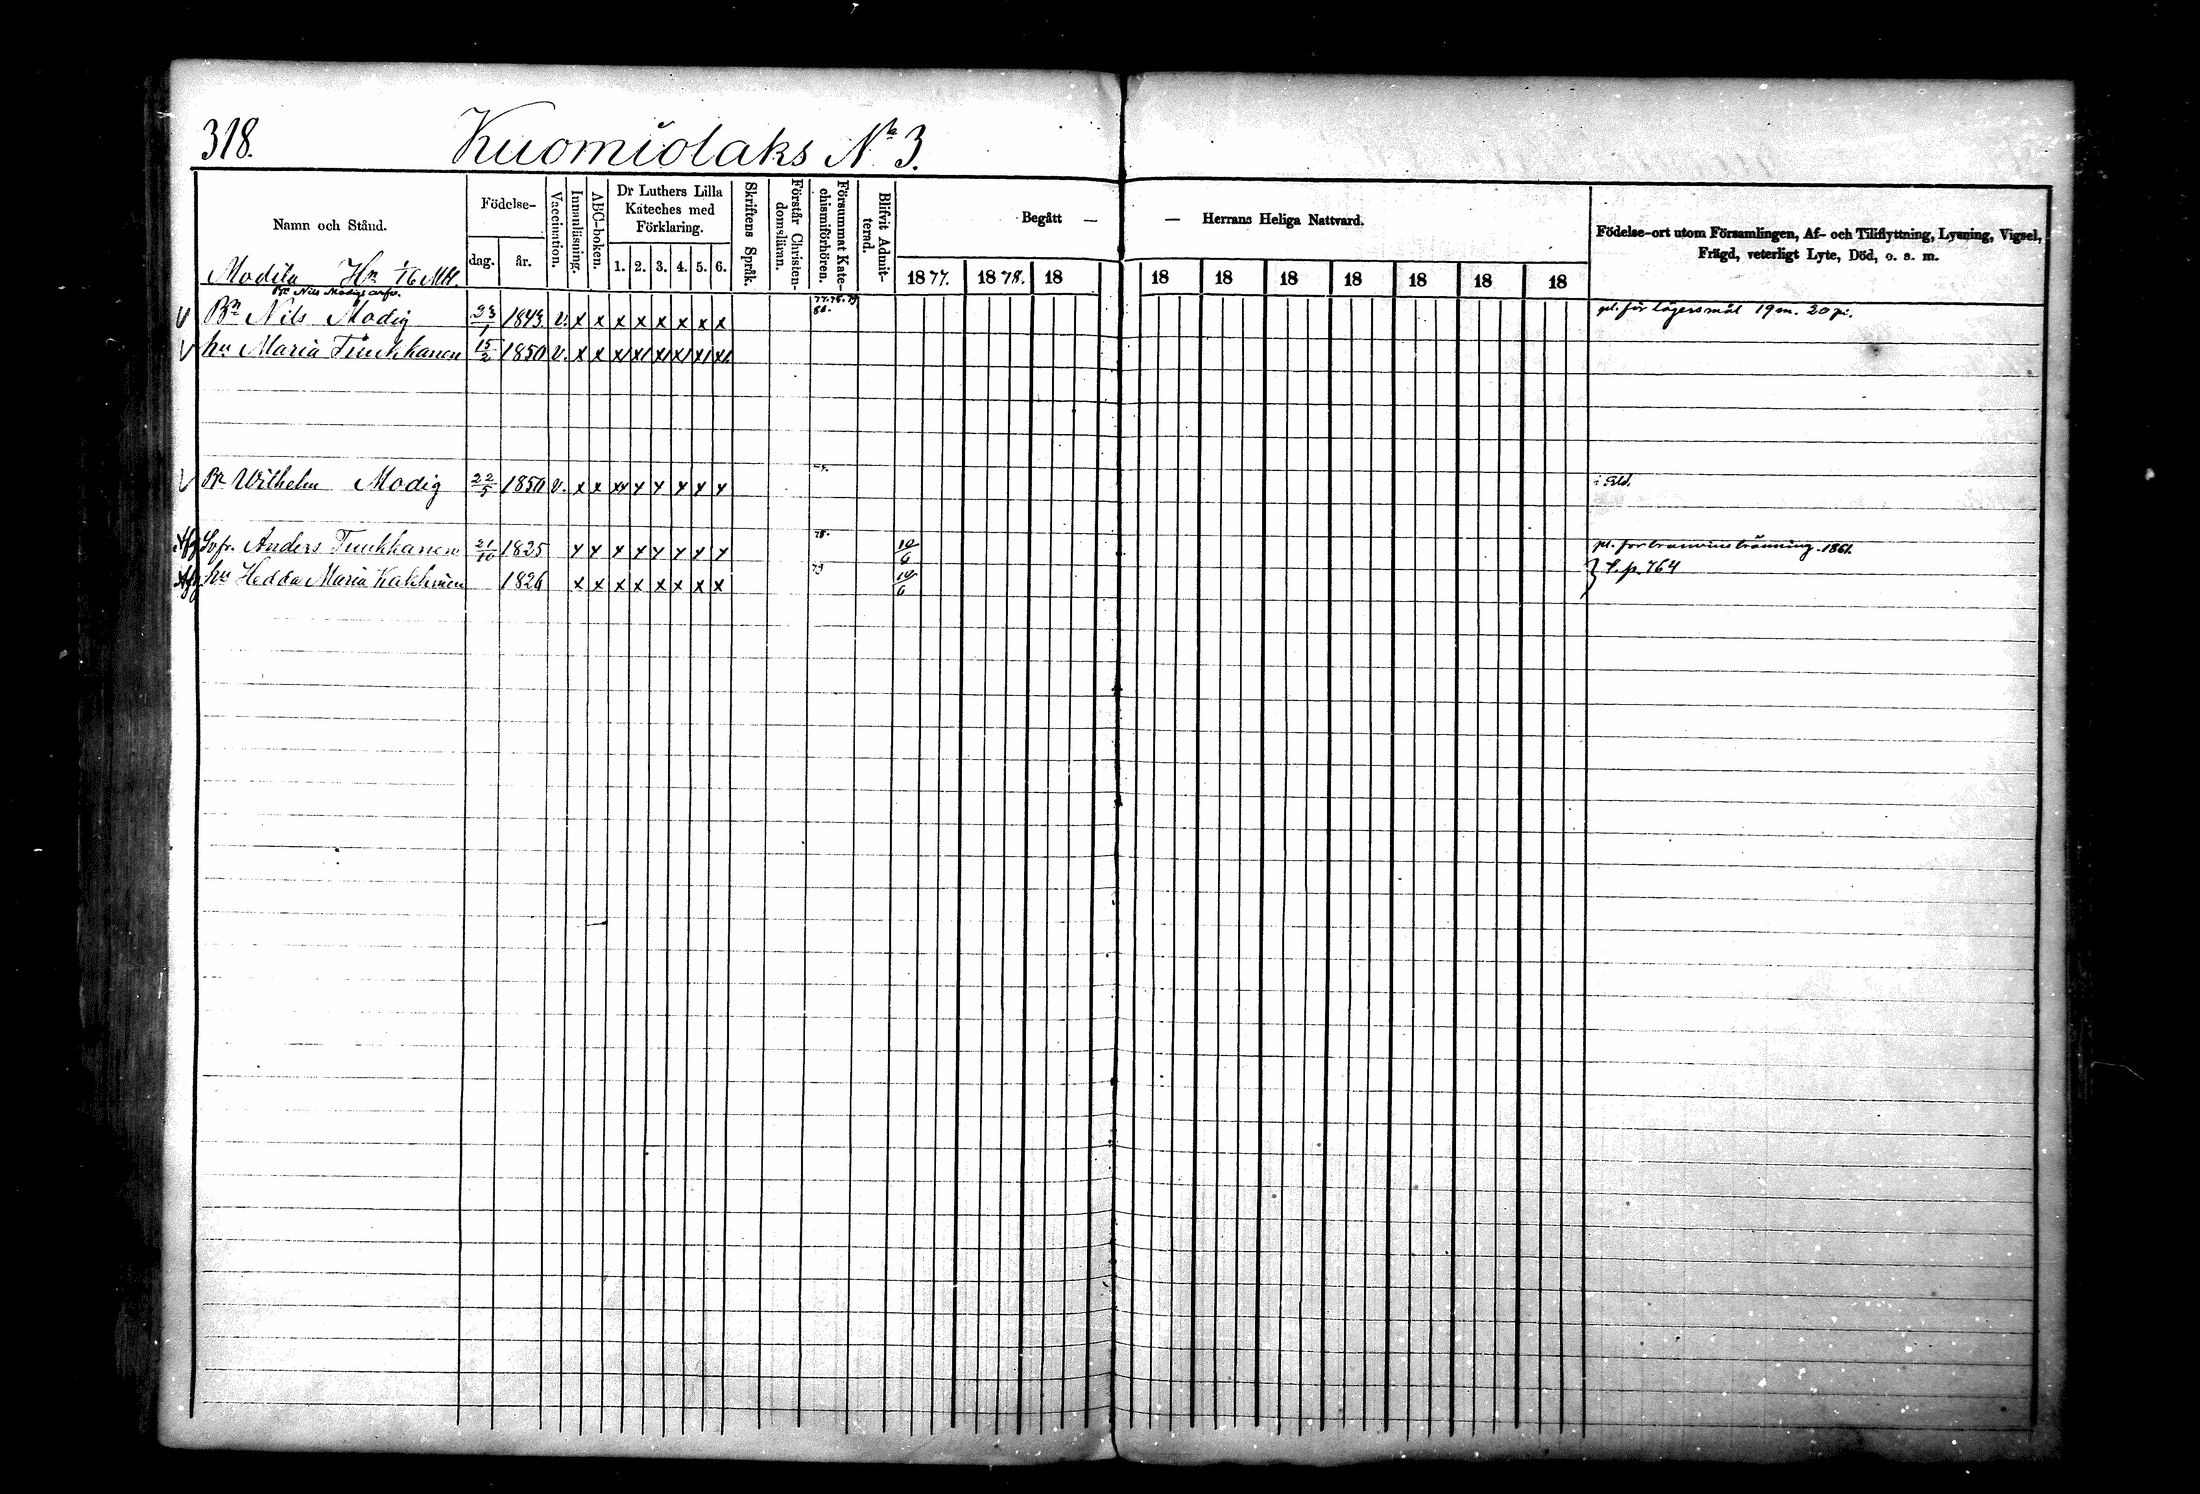 318. Kuomiolaks No 3.
Namn och Stånd. Födelse- dag. år. Vaccination. Innanläsning. ABC-boken. Dr Luthers Lilla Kateches med Förklaring. 1. 2. 3. 4. 5. 6. Skriftens Språk. Förstår Christendomsläran. Försummat Katechismiförhören. Blifvit Admitterad. Begått — — Herrans Heliga Nattvard. Födelse-ort utom Församlingen, Af- och Tillflyttning, Lysning, Vigsel, Frägd, veterligt Lyte, Död, o. s. m.
1877. 1878. 18 18 18 18 18 18 18 18
Modila Hn
Bn Nils Modig 23/1 1843 v. x x x x x x x x 77. 78. 79 80. pl. för lägersmål 19 m. 20 pi.
hu Maria Tiuhkanen 15/2 1850 v. x x x x x x x x
Br Wilhelm Modig 22/5 1850 v. x x x x x x x x
Anders Tiuhkanen 21/10 1825 x x x x x x x x 78. 10/6 1861.
hu Hedda Maria 1826 x x x x x x x x 79 10/6 p. 764